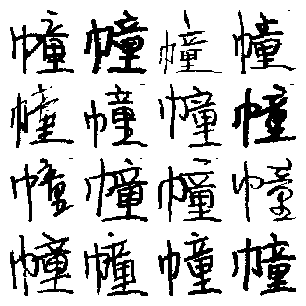 幢幢幢幢
幢幢幢幢
幢幢幢幢
幢幢幢幢